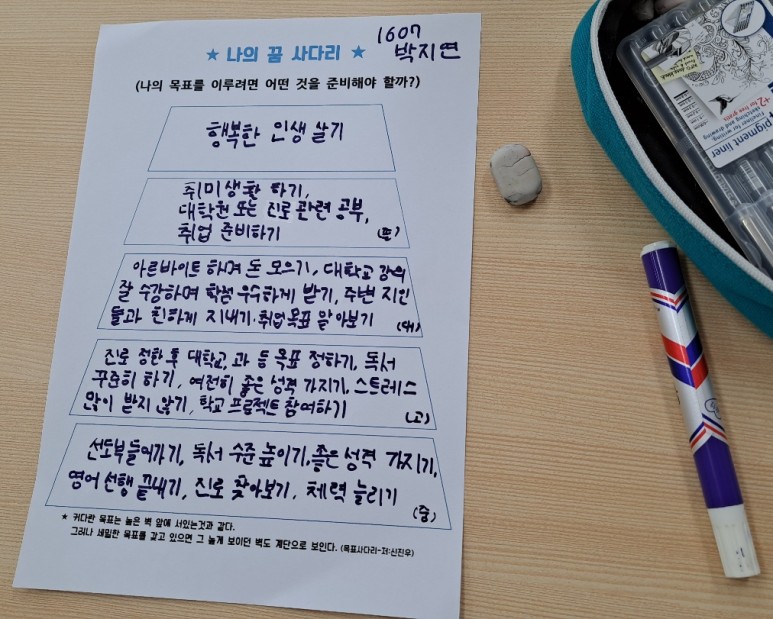 1607
박지연
★ 나의 꿈 사다리 ★
(나의 목표를 이루려면 어떤 것을 준비해야 할까?)
행복한 인생 살기
취미생활 하기,
대학원 또는 진로 관련 공부,
취업 준비하기
아르바이트 하며 돈 모으기, 대학교 강의
잘 수강하며 학점 우수하게 받기, 주변 지인
들과 친하게 지내기·취업목표 알아보기 (대)
진로 정한 후 대학교, 과 등 목표 정하기, 독서
꾸준히 하기, 여전히 좋은 성적 가지기, 스트레스
많이 받지 않기, 학교 프로젝트 참여하기 (고)
선도부 들어가기, 독서 수준 높이기, 좋은 성적 가지기,
영어 선행 끝내기, 진로 찾아보기, 체력 늘리기
(중)
★ 커다란 목표는 높은 벽 앞에 서있는것과 같다.
그러나 세밀한 목표를 갖고 있으면 그 높게 보이던 벽도 계단으로 보인다. (목표사다리-저:신진우)
pigment liner
fineliner for writing,
sketching and drawing
+2